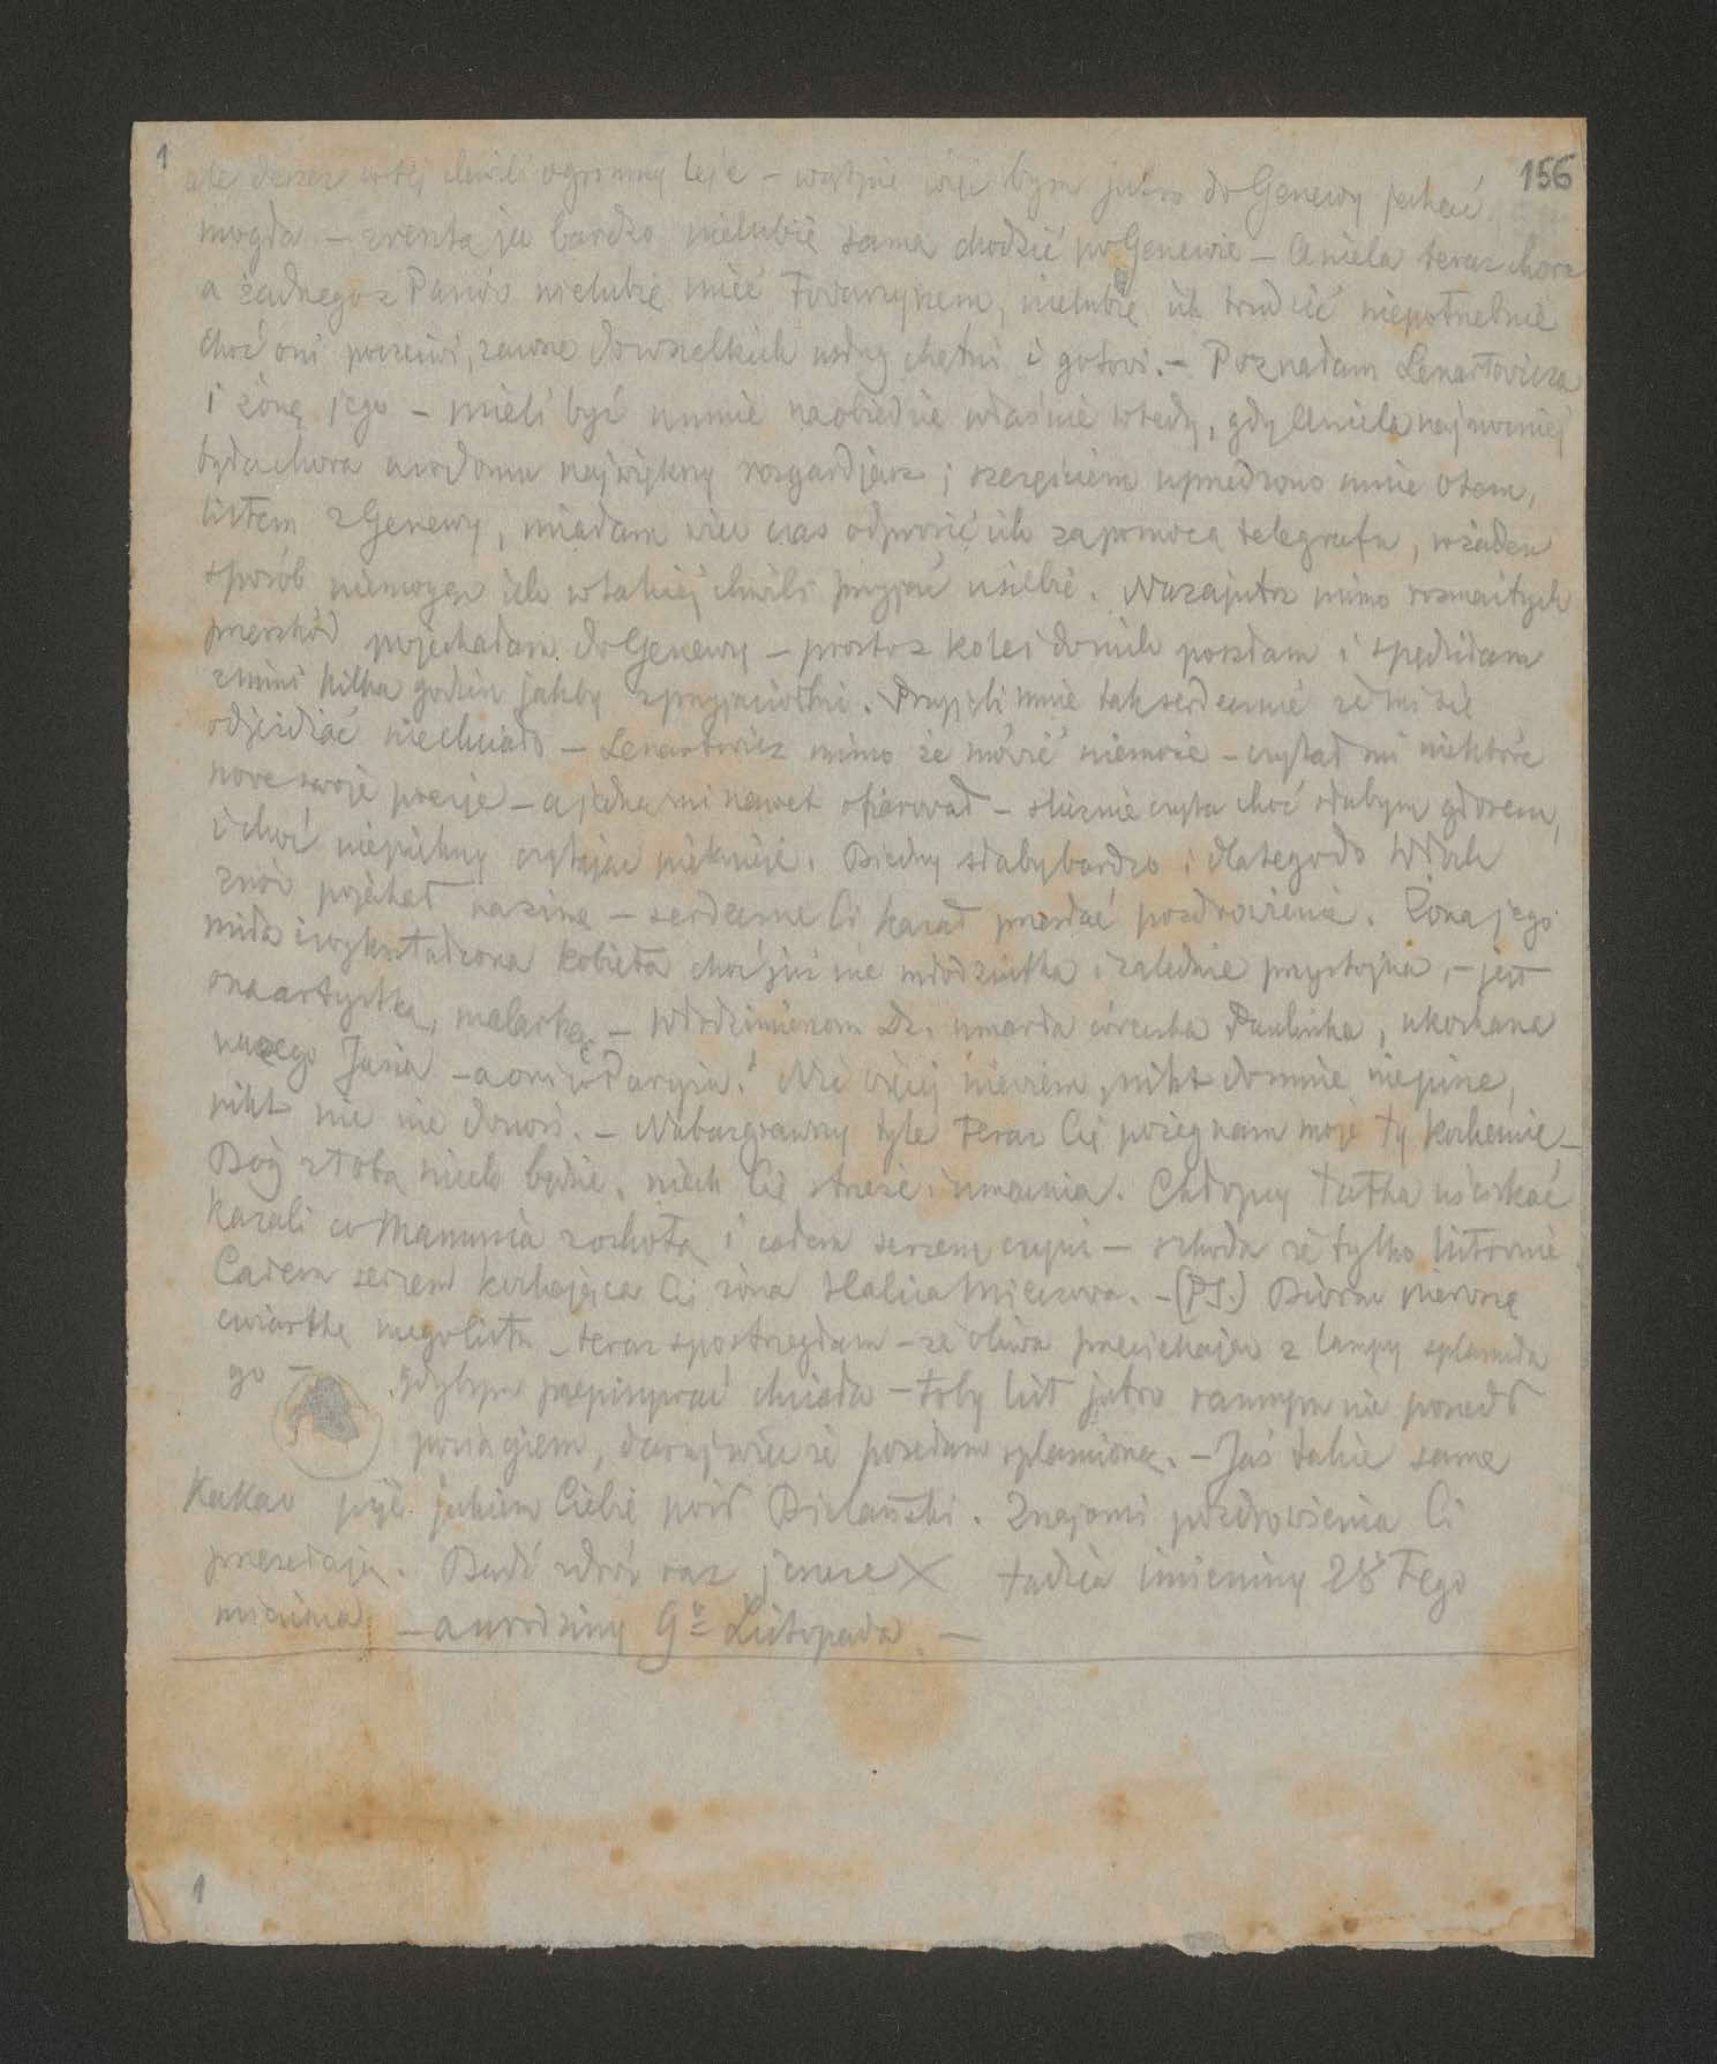 1
156
ale deszcz w tej chwili ogromny leje – wątpię więc bym jutro do Genewy jechać
mogła – zresztą ja bardzo nielubię sama chodzić po Genewie – Aniela teraz chora
a żadnego z Panów nielubię mieć Towarzyszem, nielubię ich trudzić niepotrzebnie
choć oni poczciwi, zawsze do wszelkich usług chętni i gotowi. – Poznałam Lenartowicza
i żonę jego – mieli być u mnie na obiedzie właśnie wtedy, gdy Aniela najmocniej
była chora a w domu największy rozgardjasz; szczęściem uprzedzono mnie o tem,
listem z Genewy, miałam więc czas odprosić ich za pomocą telegrafu, w żaden
sposób niemogąc ich w takiej chwili przyjąć u siebie. Nazajutrz mimo rozmaitych
przeszkód pojechałam do Genewy – prosto z kolei do nich poszłam i spędziłam
z nimi kilka godzin jakby z przyjaciółmi. Przyjęli mnie tak serdecznie że mi się
odjeżdżać niechciało – Lenartowicz mimo że mówić niemoże – czytał mi niektóre
nowe swoje poezje – a jedną mi nawet ofiarował – ślicznie czyta choć słabym głosem,
i choć niepiękny czytając pięknieje. Biedny słaby bardzo i dlatego do Włoch
znów pojechał na zimę – serdeczne Ci kazał przesłać pozdrowienie. Żona jego
miła i wykształcona kobieta choć już nie młodziutka i zaledwie przystojna, – jest
ona artystką, malarką – Włodzimierzom Dz. umarła córeczka Paulinka, ukochana
naszego Jasia – a oni w Paryżu! Nic więcej niewiem, nikt do mnie niepisze,
nikt nic nie donosi. – Nabazgrawszy tyle teraz Cię pożegnam moje ty kochanie –
Bóg z Tobą niech będzie, niech Cię strzeże i umacnia. Chłopcy Tatka uściskać
kazali co Mamunia z ochotą i całem sercem czyni – szkoda że tylko listownie
Całem sercem kochająca Cię żona Halicia Mieczowa. – (PS.) Biorąc pierwszą
ćwiartkę mego listu – teraz spostrzegłam – że oliwa przeciekając z lampy splamiła
go – gdybym przepisywać chciała – toby list jutro rannym nie poszedł
pociągiem, daruj więc że posełam splamioną. – Jaś takie same
Kakao pije jakiem Ciebie poił Bielański. Znajomi pozdrowienia Ci
przesełają. Bądź zdrów raz jeszcze X Tadzia imieniny 28 Tego
miesiąca – a urodziny 9º Listopada –
1